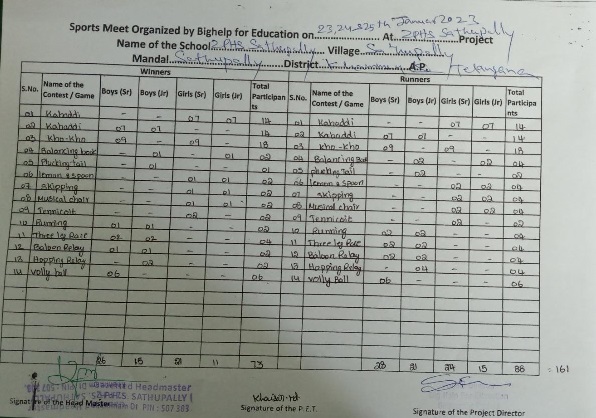 Sports Meet Organized by Bighelp for Education on 23,24,&25th January 2023 At ZPHS Sathupally Project
Name of the School ZPHS Sathupally Village Sathupally
Mandal Sathupally District A.P. Telangana
Winners Runners
S.No. Name of the Contest / Game Boys (Sr) Boys (Jr) Girls (Sr) Girls (Jr) Total Participants S.No. Name of the Contest / Game Boys (Sr) Boys (Jr) Girls (Sr) Girls (Jr) Total Participants
01 Kabaddi - - 07 07 14 01 Kabaddi - - 07 07 14
02 Kabaddi 07 07 - - 14 02 Kabaddi 07 07 - - 14
03 Kho-Kho 09 - 09 - 18 03 Kho-Kho 09 - 09 - 18
04 Balancing book - 01 - 01 02 04 Balancing Book - 02 - 02 04
05 Plucking tail - 01 - - 01 05 plucking tail - 02 - - 02
06 lemon & spoon - - 01 01 02 06 lemon & Spoon - - 02 02 04
07 skipping - - 01 01 02 07 skipping - - 02 02 04
08 Musical chair - - 01 01 02 08 Musical chair - - 02 02 04
09 Tennicoit - - 02 - 02 09 Tennicoit - - 02 - 02
10 Running 01 01 - - 02 10 Running 02 02 - - 04
11 Three leg Race 02 02 - - 04 11 Three leg Race 02 02 - - 04
12 Baloon Relay 01 01 - - 02 12 Baloon Relay 02 02 - - 04
13 Hopping Relay - 02 - - 02 13 Hopping Relay - 04 - - 04
14 volly ball 06 - - - 06 14 volly Ball 06 - - - 06
26 15 21 11 73 28 21 24 15 88 = 161
Headmaster
SATHUPALLY
PIN : 507 303
Signature of the Head Master
Signature of the P.E.T.
Signature of the Project Director